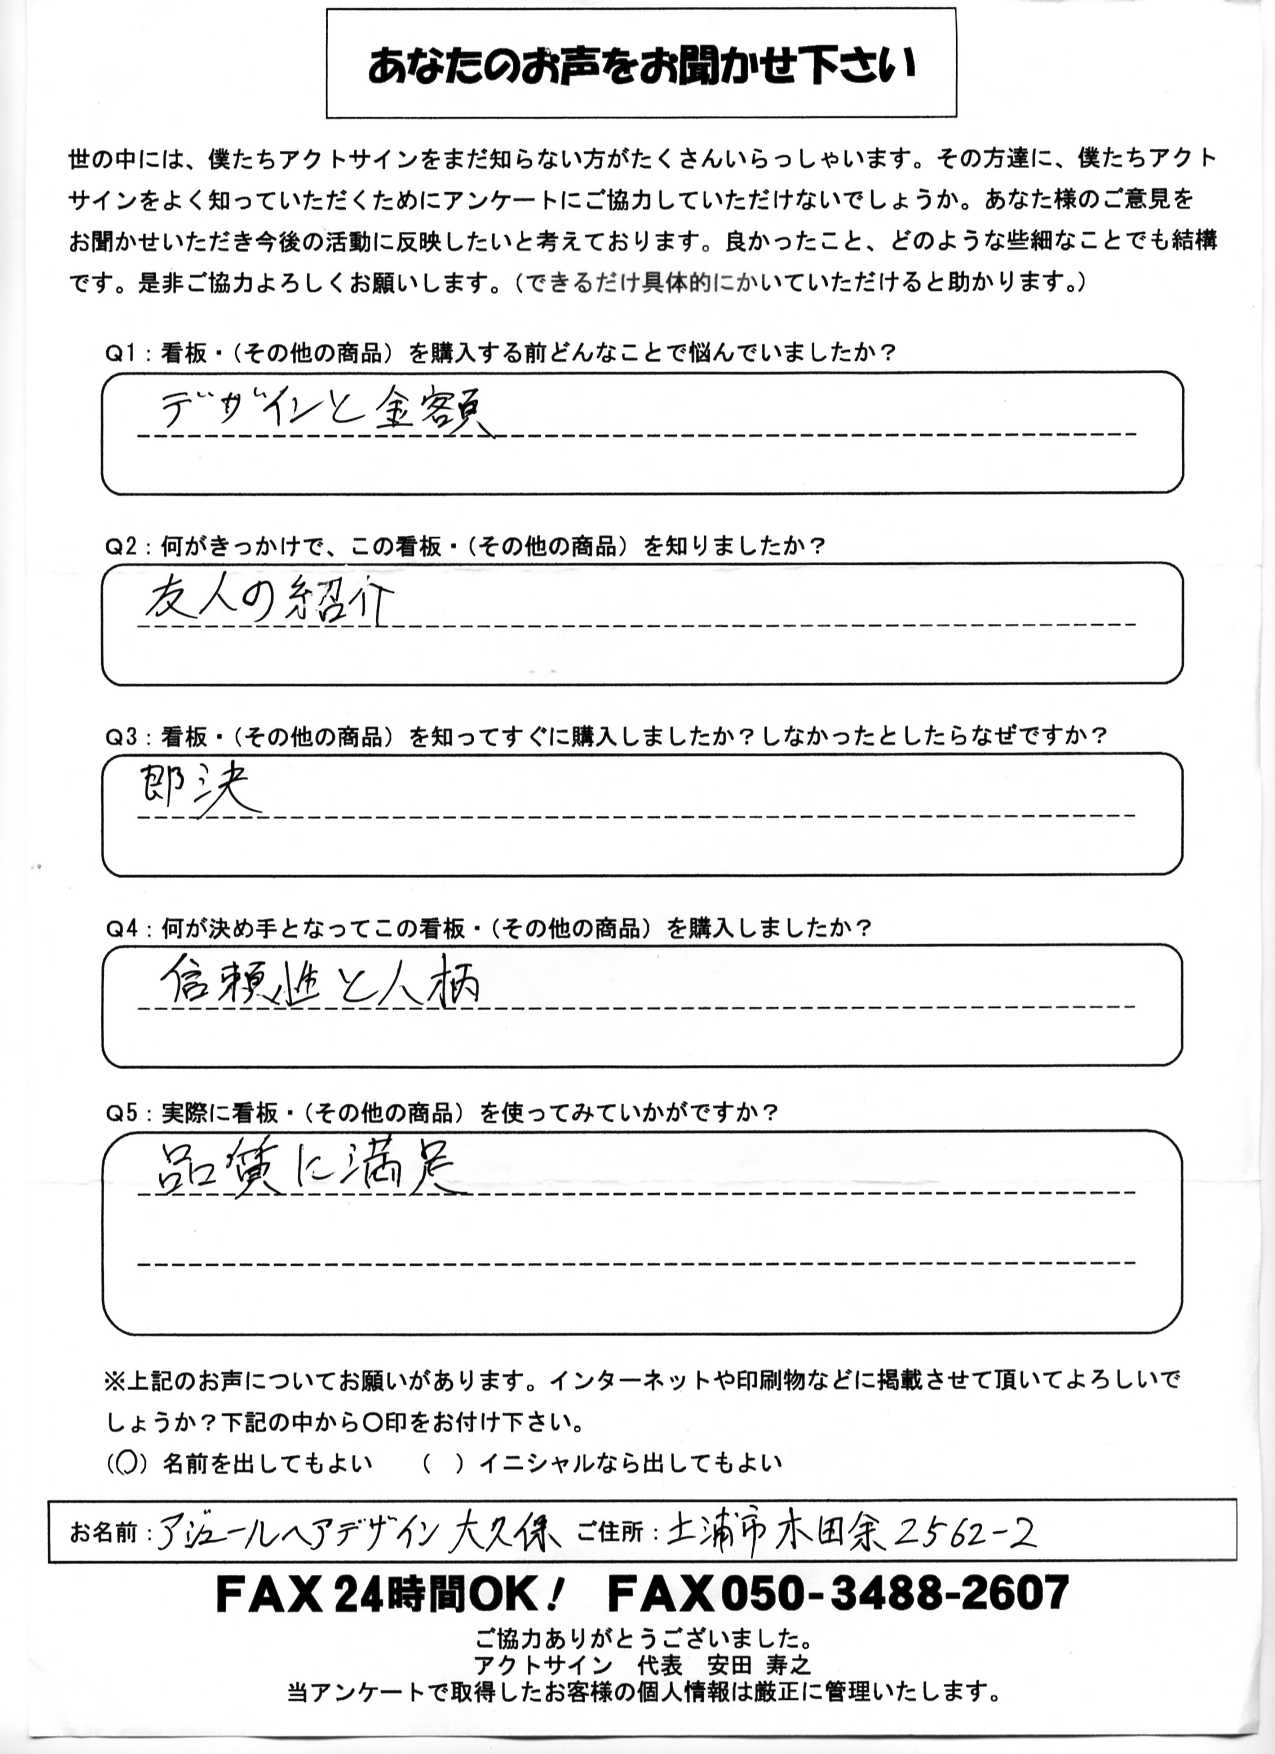 あなたのお声をお聞かせ下さい
世の中には、僕たちアクトサインをまだ知らない方がたくさんいらっしゃいます。その方達に、僕たちアクト
サインをよく知っていただくためにアンケートにご協力していただけないでしょうか。あなた様のご意見を
お聞かせいただき今後の活動に反映したいと考えております。良かったこと、どのような些細なことでも結構
です。是非ご協力よろしくお願いします。（できるだけ具体的にかいていただけると助かります。）
Q1：看板・（その他の商品）を購入する前どんなことで悩んでいましたか？
デザインと金額
Q2：何がきっかけで、この看板・（その他の商品）を知りましたか？
友人の紹介
Q3：看板・（その他の商品）を知ってすぐに購入しましたか？しなかったとしたらなぜですか？
即決
Q4：何が決め手となってこの看板・（その他の商品）を購入しましたか？
信頼性と人柄
Q5：実際に看板・（その他の商品）を使ってみていかがですか？
品質に満足
※上記のお声についてお願いがあります。インターネットや印刷物などに掲載させて頂いてよろしいで
しょうか？下記の中から〇印をお付け下さい。
（〇）名前を出してもよい　（　）イニシャルなら出してもよい
お名前：アジュールヘアデザイン 大久保 ご住所：土浦市木田余2562-2
FAX24時間OK！ FAX050-3488-2607
ご協力ありがとうございました。
アクトサイン 代表 安田 寿之
当アンケートで取得したお客様の個人情報は厳正に管理いたします。